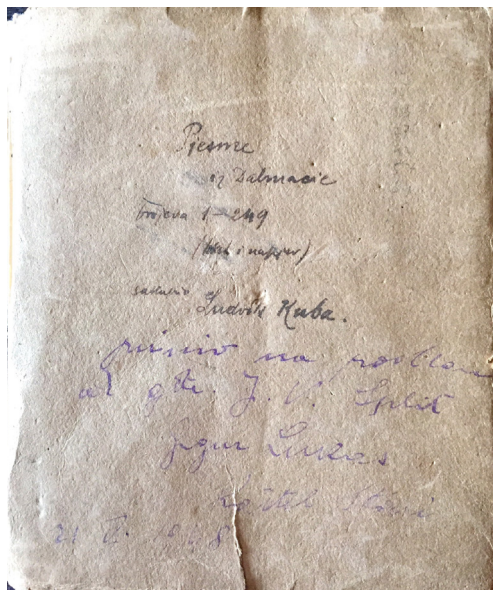 Pjesme
iz Dalmacije
brojeva 1-249
(tekst i napjev)
sakupio Ludvik Kuba.
primio na poklon
od gđe J. V. Split
Jegur Lukas
Kaštel Stari
21 II 1948